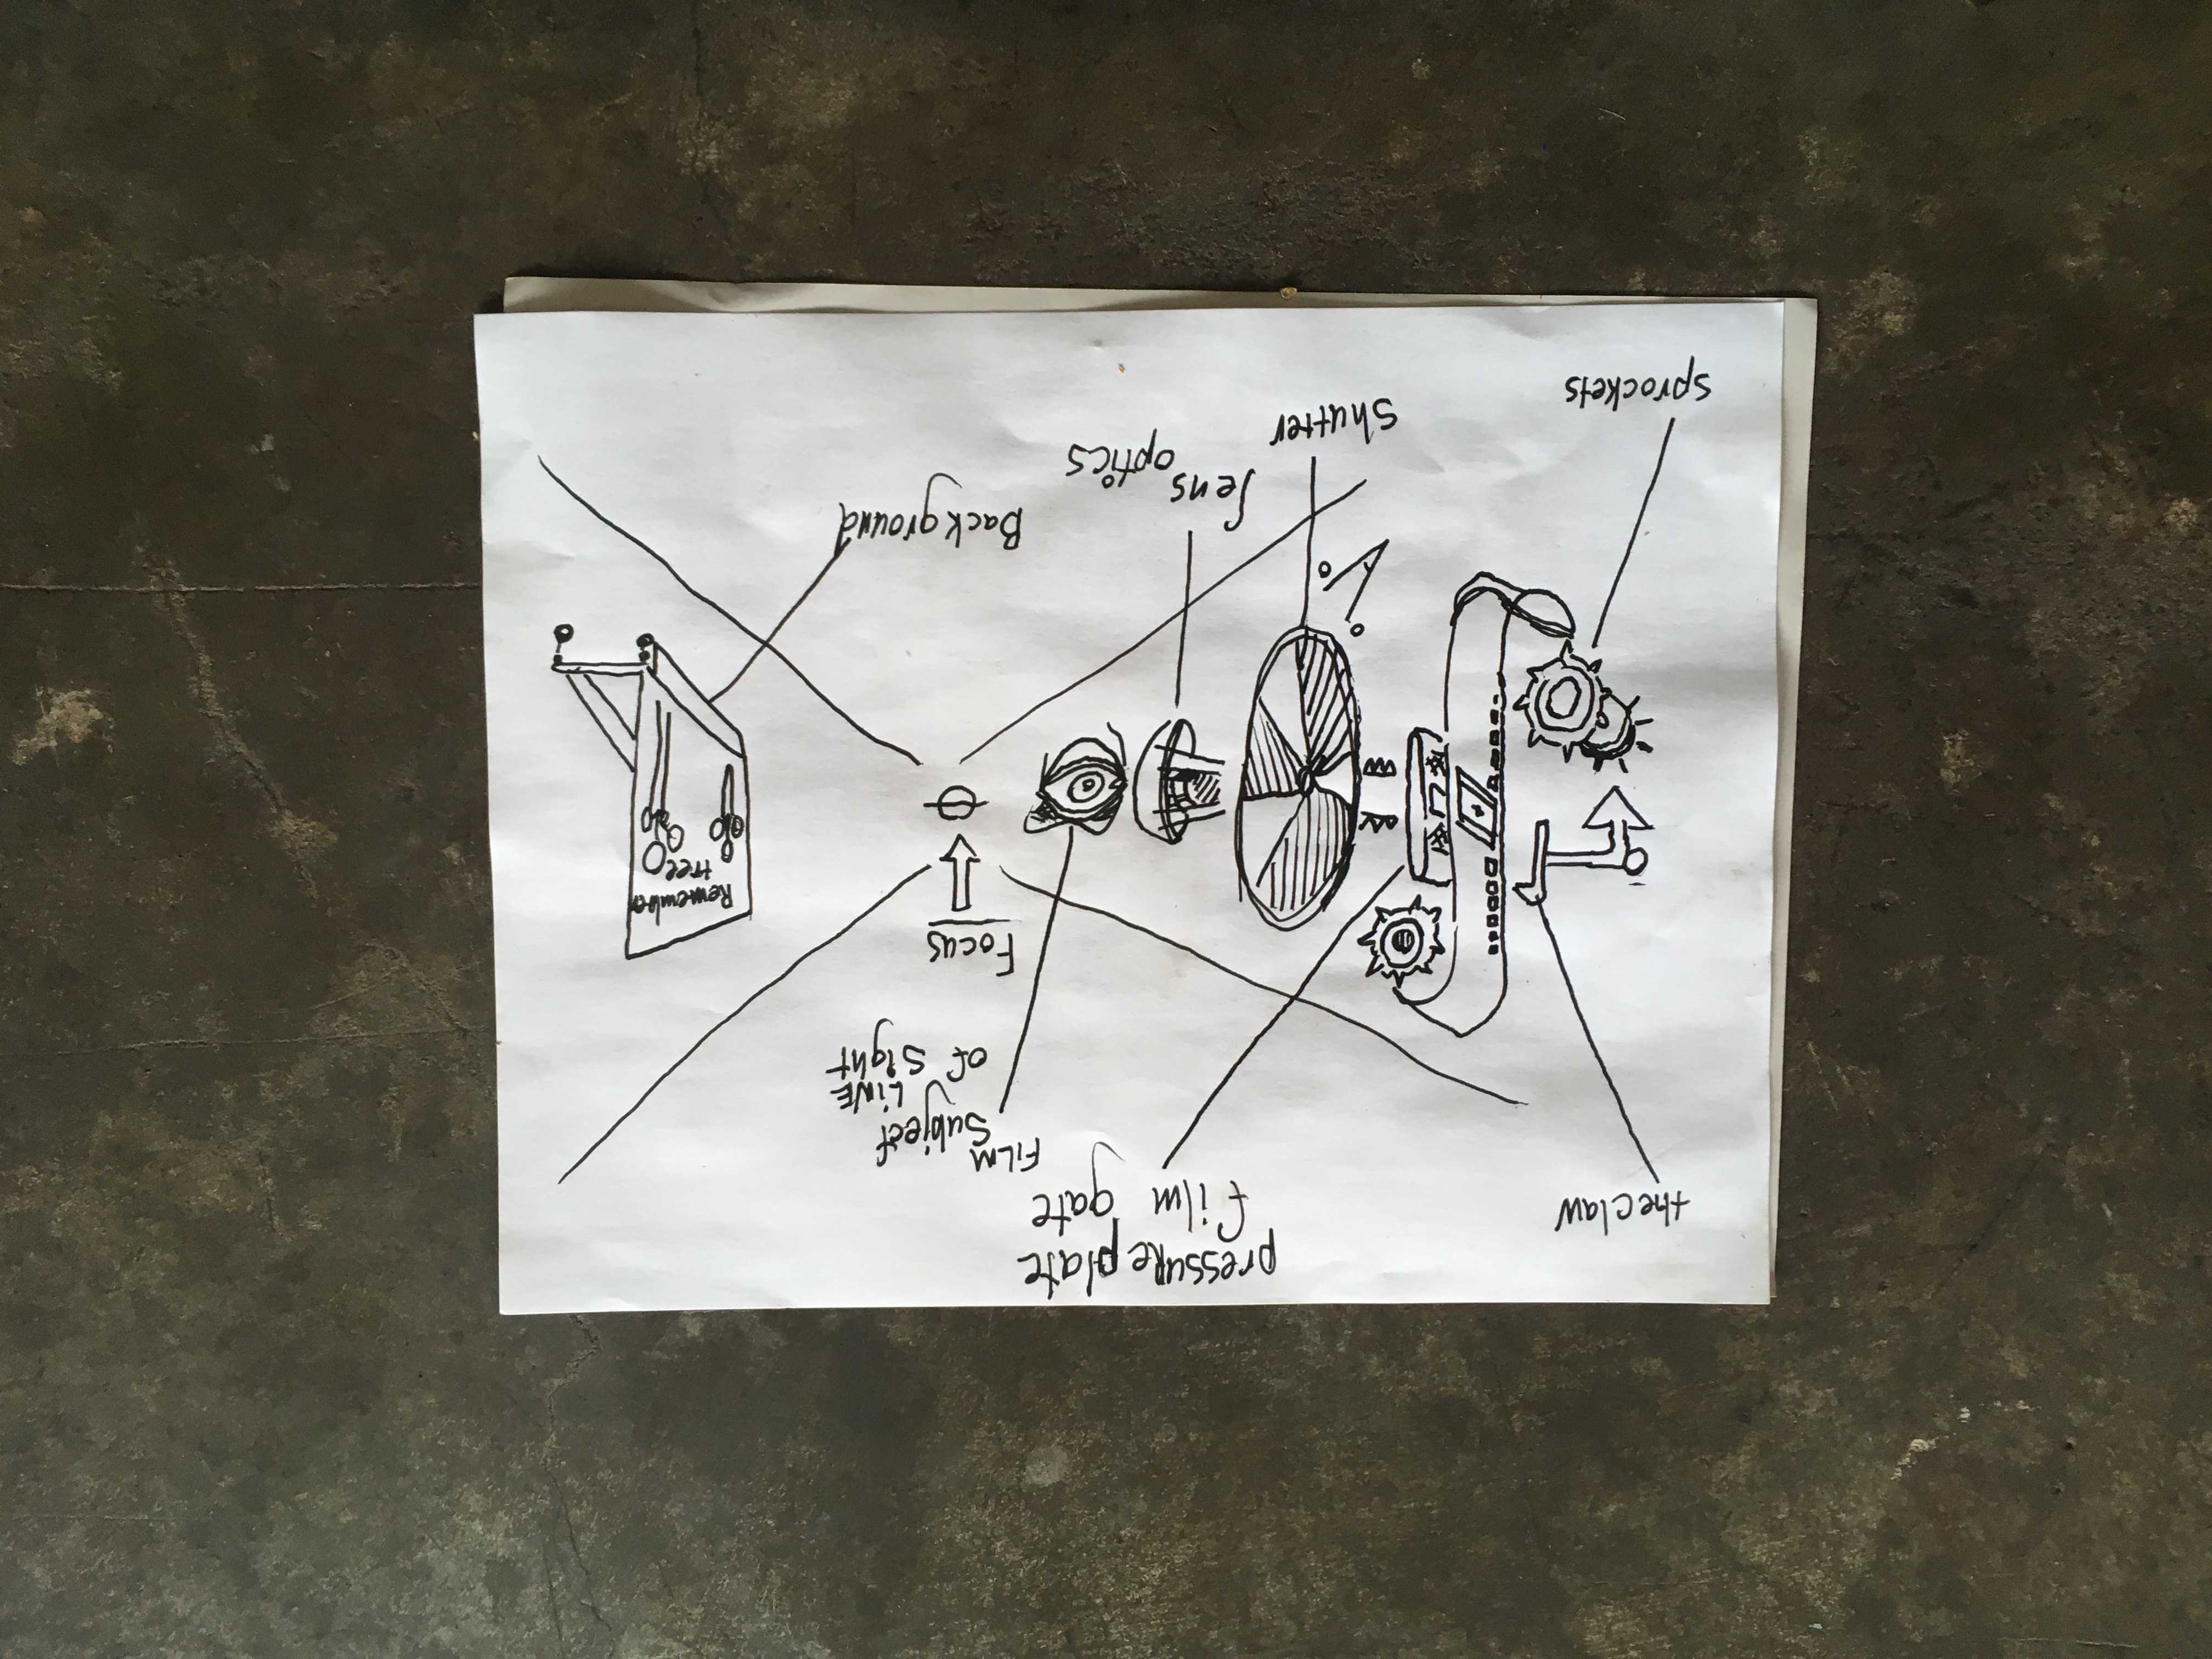 pressure plate
film gate
the claw
FiLM
Subject
LiNE
of Sight
Focus
Remember
tree
Background
lens
optics
Shutter
Sprockets